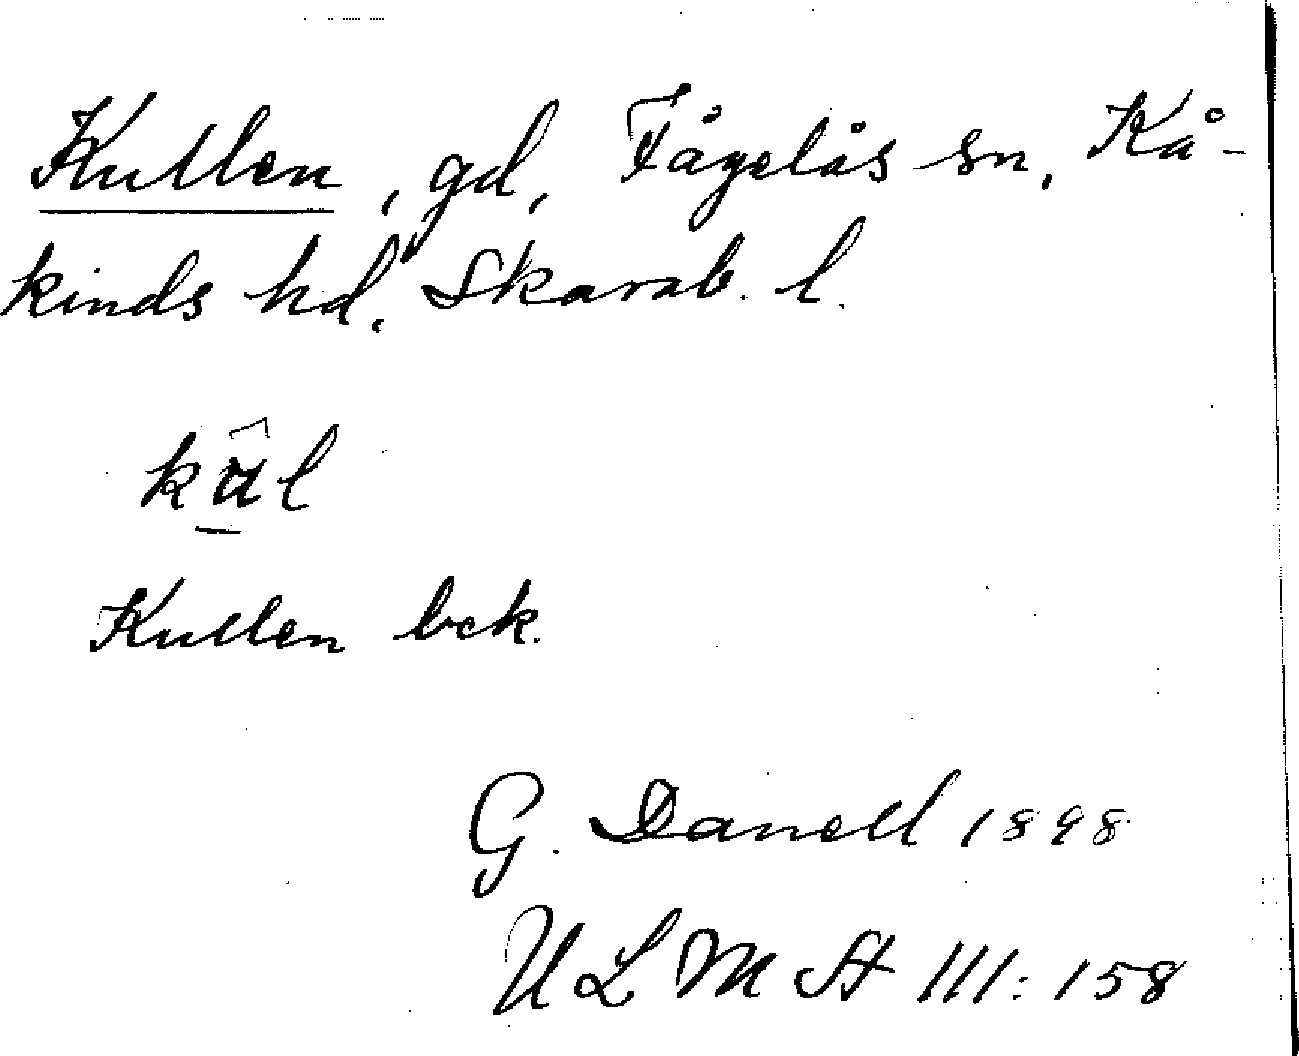 Kullen, gd, Fågelås sn, Kå-
kinds hd, Skarab. l.
Kullen bek.
G. Danell 1898
ULMA III:158